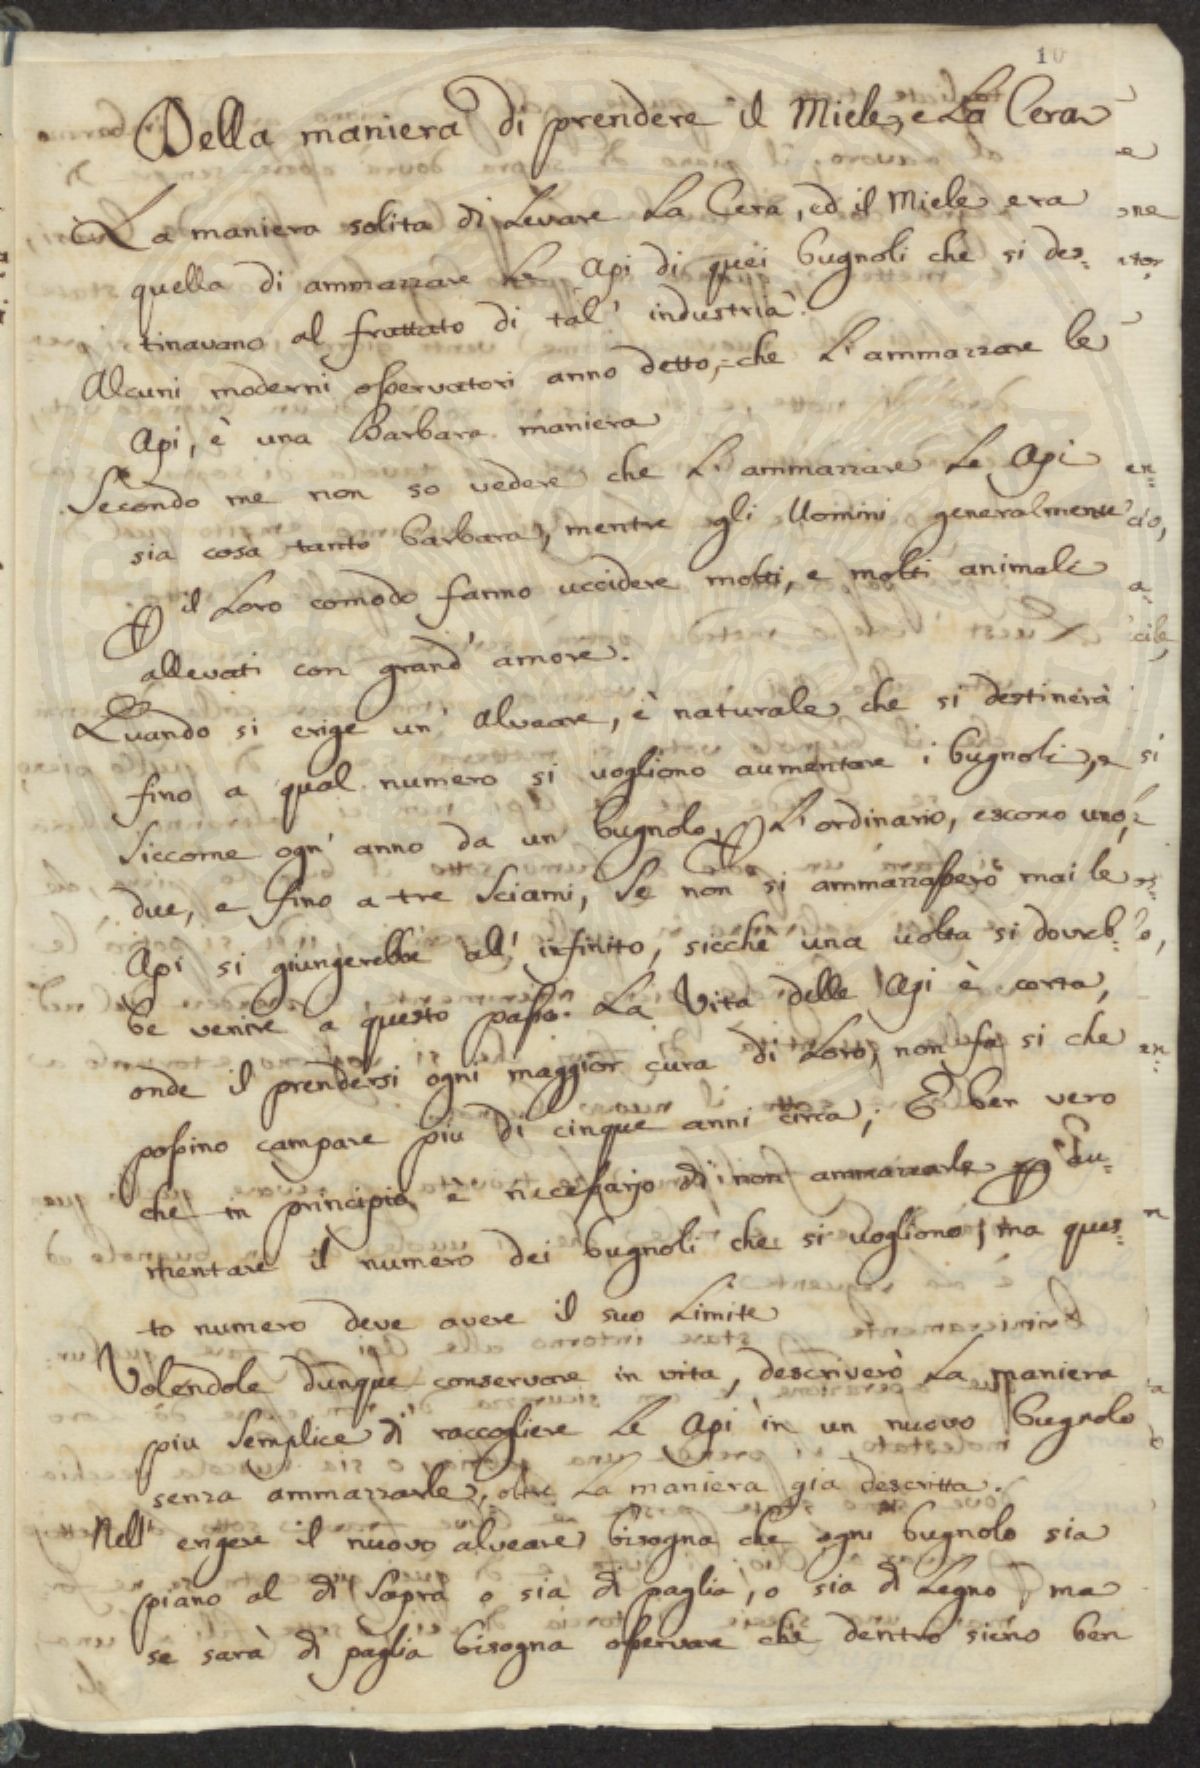 10
Della maniera di prendere il Miele, e La Cera
La maniera solita di Levare La Cera, ed il Miele era
quella di ammazzare Le Api di quei bugnoli che si des=
tinavano al fruttato di tal' industria.
Alcuni moderni osservatori anno detto, che L'ammazzare le
Api, è una Barbara maniera
Secondo me non so vedere che L'ammazzare Le Api
sia cosa tanto barbara, mentre gli Uomini generalmente
il Loro comodo fanno uccidere molti, e molti animali
allevati con grand' amore.
Quando si erige un' Alveare, è naturale che si destinerà
fino a qual numero si vogliono aumentare i bugnoli, e
siccome ogn' anno da un bugnolo, L'ordinario, escono uno,
due, e fino a tre Sciami, Se non si ammazzassero mai le
Api si giungerebbe all' infinito, sicchè una volta si dovreb=
be venire a questo passo. La Vita delle Api è corta,
onde il prendersi ogni maggior cura di Loro, non fa si che
possino campare piu di cinque anni circa; È ben vero
che in principio è necessario di non ammazzarle au=
mentare il numero dei bugnoli che si vogliono, ma ques=
to numero deve avere il suo Limite
Volendole dunque conservare in vita, descriverò La maniera
piu Semplice di raccogliere Le Api in un nuovo bugnolo
senza ammazzarle, oltre La maniera gia descritta.
Nell' erigere il nuovo alveare bisogna che ogni bugnolo sia
piano al di Sopra o sia di paglia, o sia di Legno, ma
se sarà di paglia bisogna osservare che dentro sieno ben